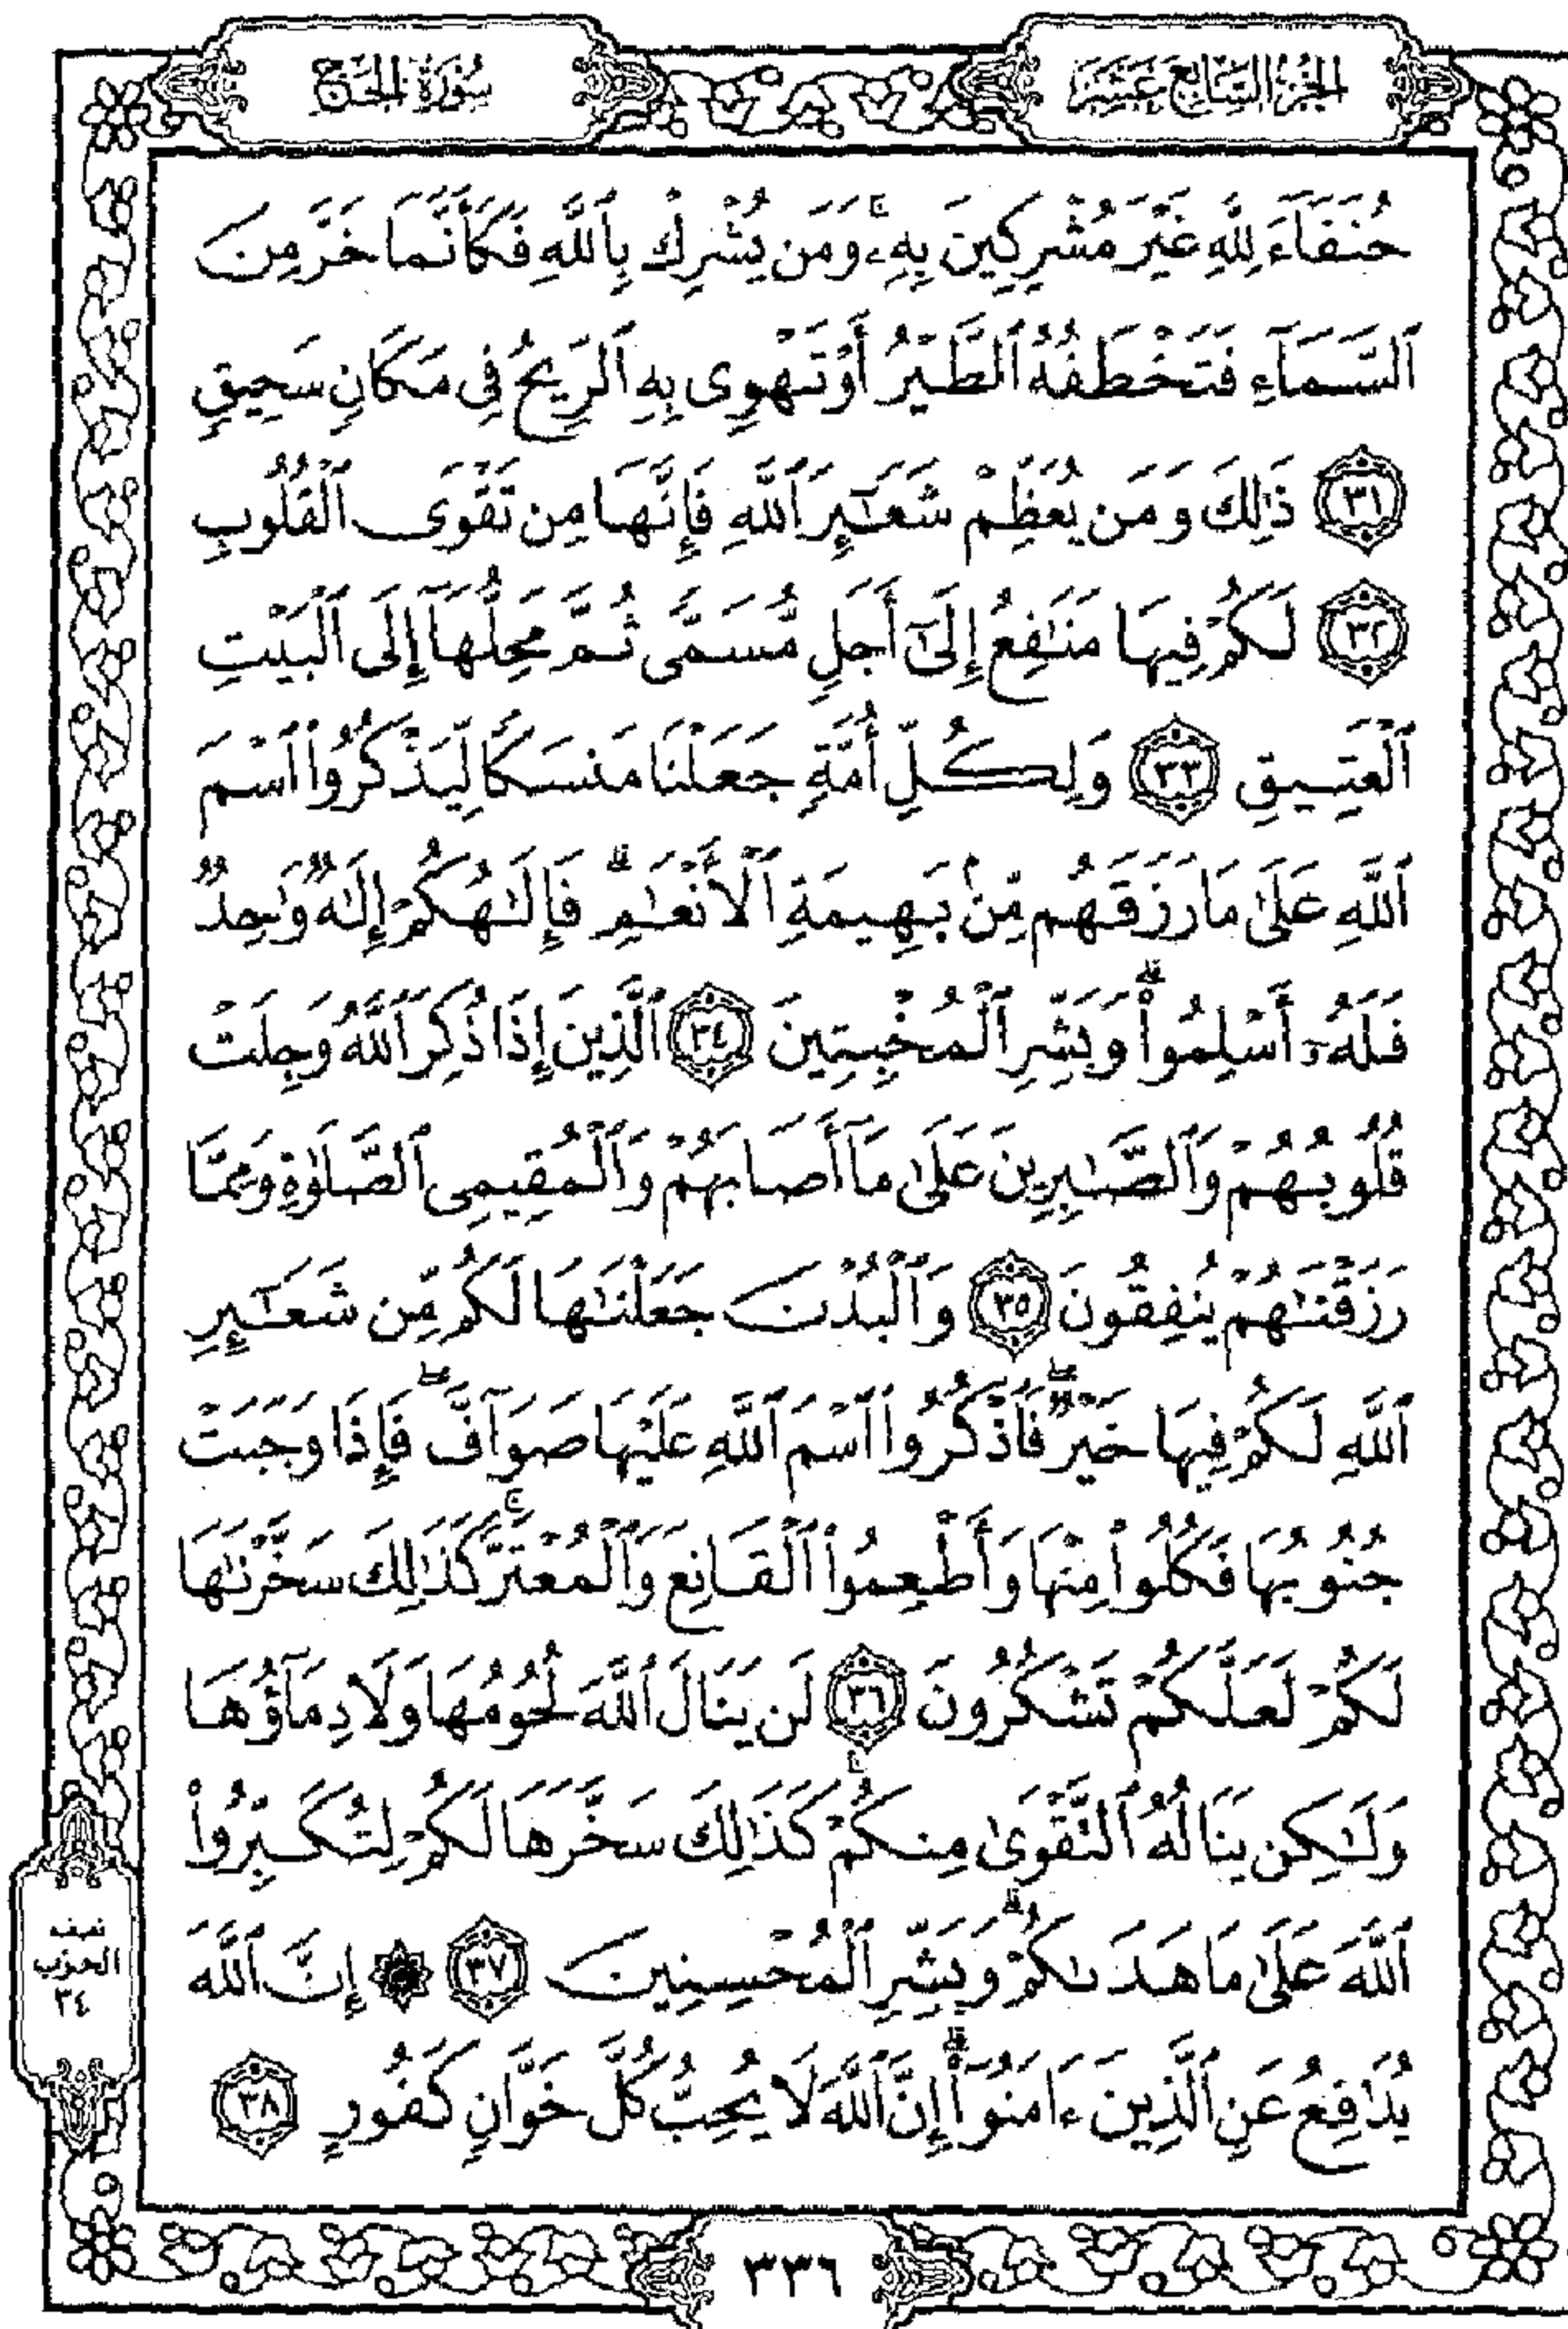 الجزء السابع عشر
سورة الحج
حُنَفَآءَ لِلَّهِ غَيْرَ مُشْرِكِينَ بِهِۦۚ وَمَن يُشْرِكْ بِٱللَّهِ فَكَأَنَّمَا خَرَّ مِنَ
ٱلسَّمَآءِ فَتَخْطَفُهُ ٱلطَّيْرُ أَوْ تَهْوِى بِهِ ٱلرِّيحُ فِى مَكَانٍ سَحِيقٍ
٣١ ذَٰلِكَ وَمَن يُعَظِّمْ شَعَٰٓئِرَ ٱللَّهِ فَإِنَّهَا مِن تَقْوَى ٱلْقُلُوبِ
٣٢ لَكُمْ فِيهَا مَنَٰفِعُ إِلَىٰٓ أَجَلٍ مُّسَمًّى ثُمَّ مَحِلُّهَآ إِلَى ٱلْبَيْتِ
ٱلْعَتِيقِ ٣٣ وَلِكُلِّ أُمَّةٍ جَعَلْنَا مَنسَكًا لِّيَذْكُرُوا۟ ٱسْمَ
ٱللَّهِ عَلَىٰ مَا رَزَقَهُم مِّنۢ بَهِيمَةِ ٱلْأَنْعَٰمِۗ فَإِلَٰهُكُمْ إِلَٰهٌ وَٰحِدٌ
فَلَهُۥٓ أَسْلِمُوا۟ۗ وَبَشِّرِ ٱلْمُخْبِتِينَ ٣٤ ٱلَّذِينَ إِذَا ذُكِرَ ٱللَّهُ وَجِلَتْ
قُلُوبُهُمْ وَٱلصَّٰبِرِينَ عَلَىٰ مَآ أَصَابَهُمْ وَٱلْمُقِيمِى ٱلصَّلَوٰةِ وَمِمَّا
رَزَقْنَٰهُمْ يُنفِقُونَ ٣٥ وَٱلْبُدْنَ جَعَلْنَٰهَا لَكُم مِّن شَعَٰٓئِرِ
ٱللَّهِ لَكُمْ فِيهَا خَيْرٌۖ فَٱذْكُرُوا۟ ٱسْمَ ٱللَّهِ عَلَيْهَا صَوَآفَّۖ فَإِذَا وَجَبَتْ
جُنُوبُهَا فَكُلُوا۟ مِنْهَا وَأَطْعِمُوا۟ ٱلْقَانِعَ وَٱلْمُعْتَرَّۚ كَذَٰلِكَ سَخَّرْنَٰهَا
لَكُمْ لَعَلَّكُمْ تَشْكُرُونَ ٣٦ لَن يَنَالَ ٱللَّهَ لُحُومُهَا وَلَا دِمَآؤُهَا
وَلَٰكِن يَنَالُهُ ٱلتَّقْوَىٰ مِنكُمْۚ كَذَٰلِكَ سَخَّرَهَا لَكُمْ لِتُكَبِّرُوا۟
ٱللَّهَ عَلَىٰ مَا هَدَىٰكُمْۗ وَبَشِّرِ ٱلْمُحْسِنِينَ ٣٧ ۞ إِنَّ ٱللَّهَ
يُدَٰفِعُ عَنِ ٱلَّذِينَ ءَامَنُوٓا۟ۗ إِنَّ ٱللَّهَ لَا يُحِبُّ كُلَّ خَوَّانٍ كَفُورٍ ٣٨
نصف
الحزب
٣٤
٣٣٦